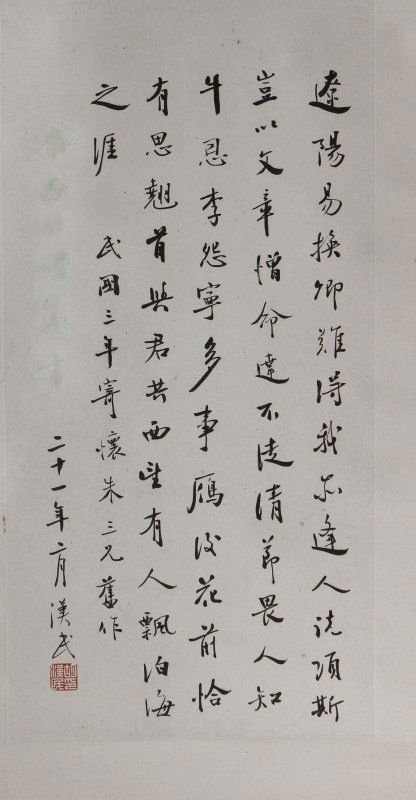 遼陽易換卿難得我亦逢人説項斯
豈以文章憎命達不徒清節畏人知
牛恩李怨寧多事雁後花前恰
有思翹首與君共西望有人飄泊海
之涯 民國三年寄懷朱三兄舊作
二十一年月漢民